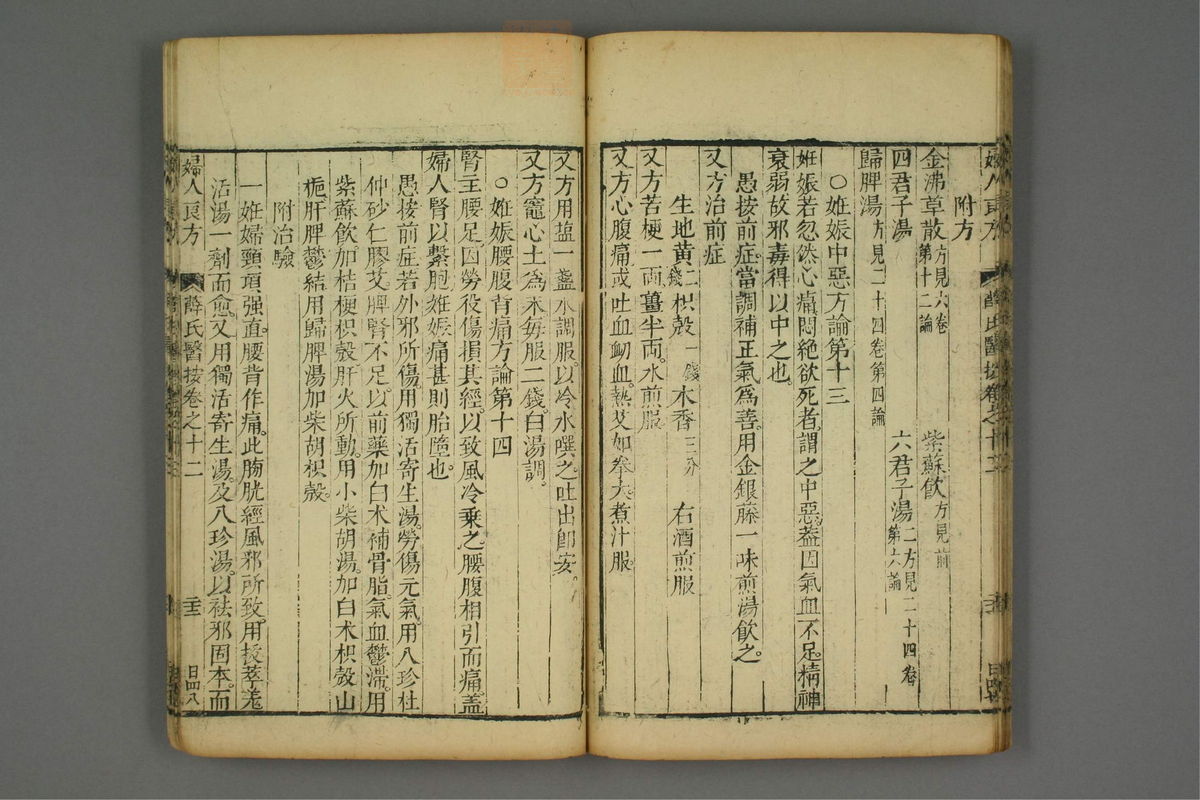 婦人良方　薛氏醫按卷之十二
附方
金沸草散方見六卷第十二論　紫蘇飲方見前
四君子湯　六君子湯二方見二十四卷第六論
歸脾湯方見二十四卷第四論
○姙娠中惡方論第十三
姙娠若忽然心痛悶絶欲死者謂之中惡蓋因氣血不足精神
衰弱故邪毒得以中之也
愚按前症當調補正氣爲善用金銀藤一味煎湯飲之
又方治前症
生地黄二錢　枳殻一錢　木香三分　右酒煎服
又方苦梗一兩薑半兩水煎服
又方心腹痛或吐血衂血熱艾如拳大煮汁服
又方用塩一盞水調服以冷水噀之吐出卽安
又方竈心土爲末每服二錢白湯調
○姙娠腰腹背痛方論第十四
腎主腰足因勞役傷損其經以致風冷乗之腰腹相引而痛蓋
婦人腎以繫胞姙娠痛甚則胎墮也
愚按前症若外邪所傷用獨活寄生湯勞傷元氣用八珍杜
仲砂仁膠艾脾腎不足以前藥加白术補骨脂氣血鬱滯用
紫蘇飲加桔梗枳殻肝火所動用小柴胡湯加白术枳殻山
梔肝脾鬱結用歸脾湯加柴胡枳殻
附治驗
一姙婦頸項强直腰背作痛此膀胱經風邪所致用拔萃羌
活湯一劑而愈又用獨活寄生湯及八珍湯以祛邪固本而
婦人良方　薛氏醫按卷之十二　日四八